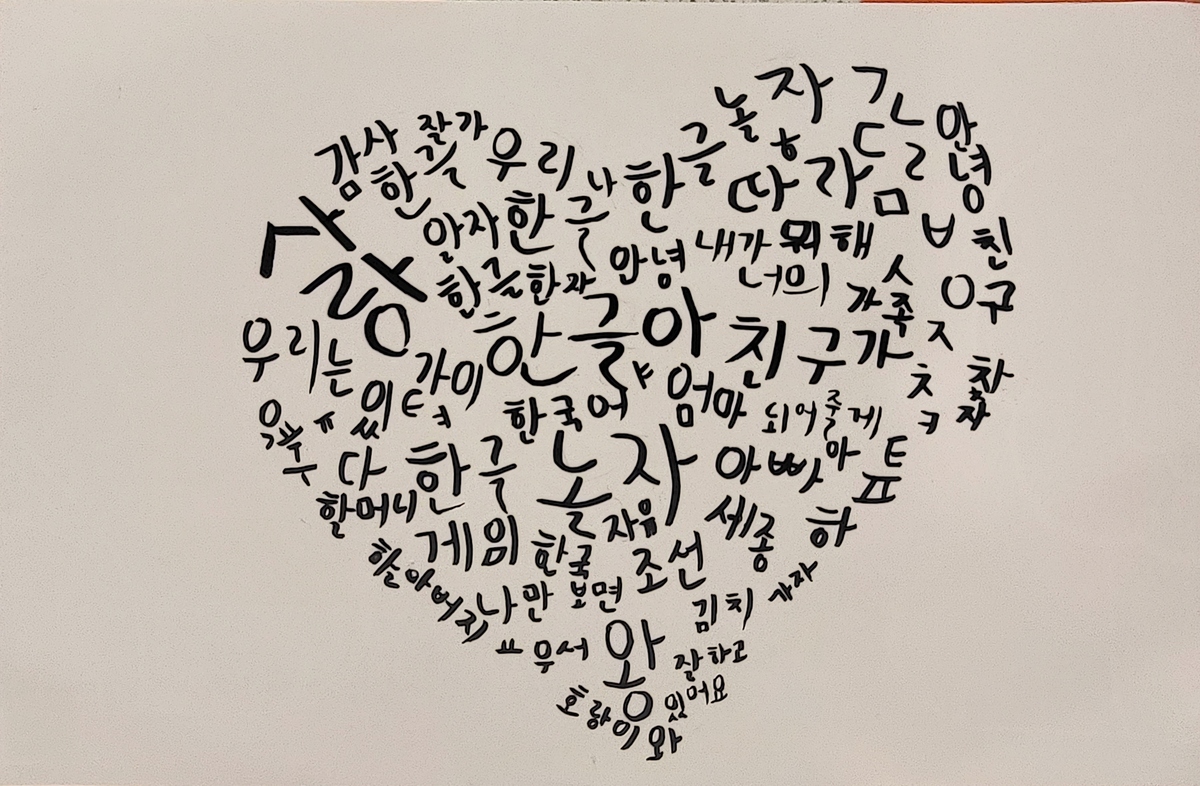 놀자
감사 잘가 우리 나 한글
안녕
한글 따람
사랑 알자 한글
한글한자 안녕 내가 뭐해
너의
가족 친구
우리는 한글아 친구가
같이 엄마 되어줄게
한국어
차자
우주 있다 한국 놀자 아빠야
할머니
게임 한국 자유 세종 하
조선
할아버지 나만 보면 김치 가자
우서 왕 잘하고
있어요
호랑이와